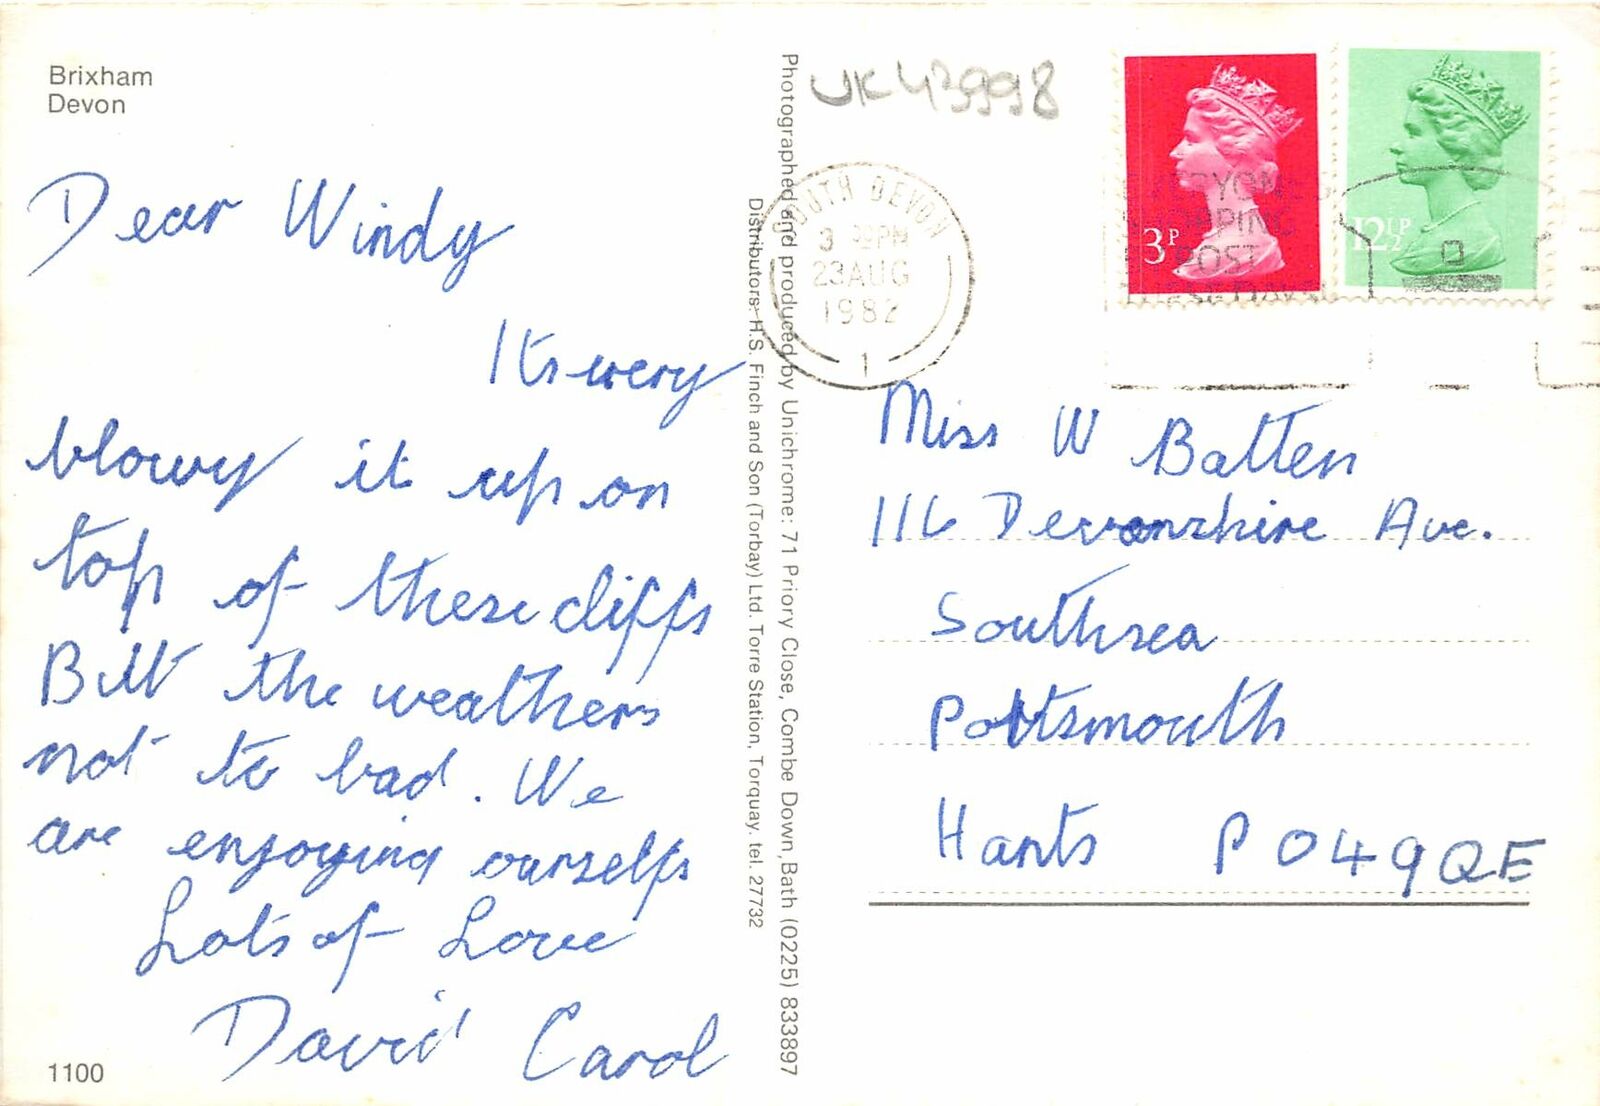 Brixham
Devon
Dear Windy
Its very
blowy it up on
top of these cliffs
But the weathers
not to bad. We
are enjoying ourselfs
Lots of Love
David Carol
1100
Photographed and produced by Unichrome: 71 Priory Close, Combe Down, Bath (0225) 833897
Distributors: H.S. Finch and Son (Torbay) Ltd. Torre Station, Torquay. tel. 27732
UK43998
SOUTH DEVON
PM
23 AUG
1982
1
3P
12½P
Miss W Batten
116 Devonshire Ave.
Southsea
Portsmouth
Hants PO49QE